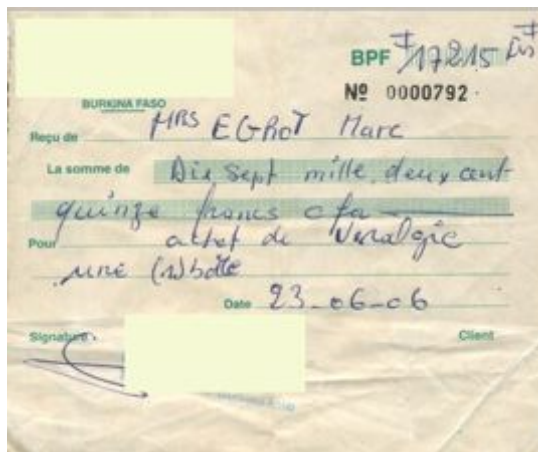 BPF 17215 Frs
Nº 0000792
BURKINA FASO
Reçu de MRS EGROT Marc
La somme de Dix Sept mille deux cent
quinze francs cfa
Pour achat de Viralgic
une (1) boîte
Date 23-06-06
Signature Client
BURKINA FASO